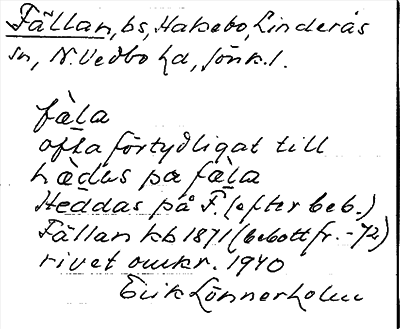 Fällan, bs, Hakebo, Linderås
sn, N. Vedbo hd, Jönk. l.
fàla
ofta förtydligat till
hèdus pa fàla
Heddas på F. (efter beb.)
Fällan kb 1871 (bebott fr. -72)
rivet omkr. 1940
Erik Lönnerholm